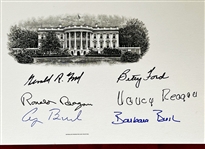 Gerald R. Ford Betty Ford
Ronald Reagan Nancy Reagan
G Bush Barbara Bush